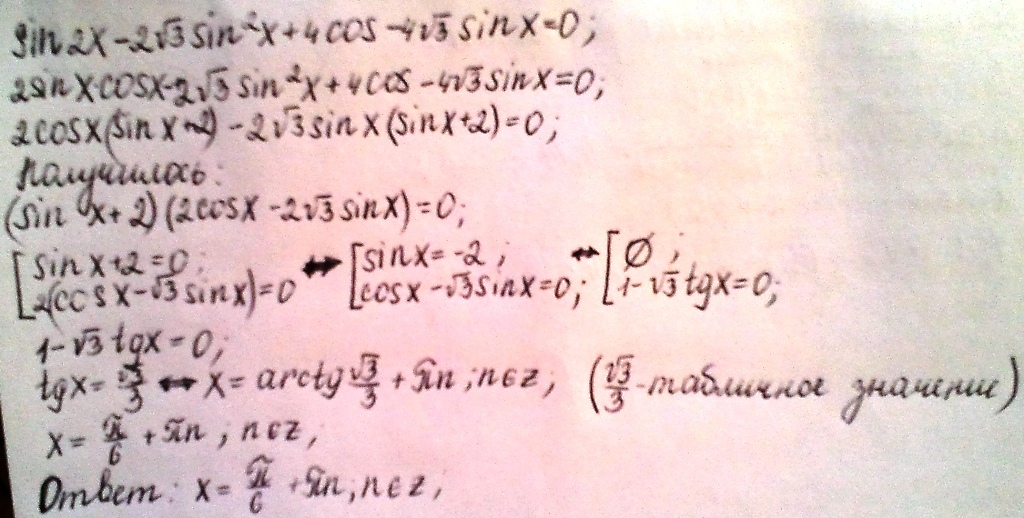 sin2x-2√3sin²x+4cos-4√3sinx=0;
2sinxcosx-2√3sin²x+4cos-4√3sinx=0;
2cosx(sinx+2)-2√3sinx(sinx+2)=0;
Получилось:
(sin x+2)(2cosx-2√3sinx)=0;
[sinx+2=0; ↔ [sinx=-2; ↔ [∅;
2(cosx-√3sinx)=0 cosx-√3sinx=0; 1-√3tgx=0;
1-√3tgx=0;
tgx=√3/3 ↔ x=arctg√3/3+πn; n∈z; (√3/3-табличное значение)
x=π/6+πn; n∈z;
Ответ: x=π/6+πn; n∈z;